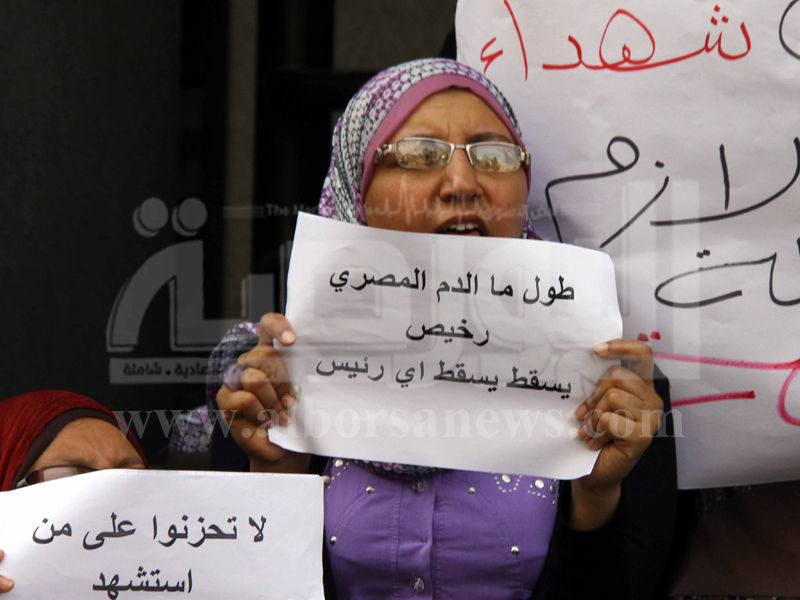 شهداء
لازم
طول ما الدم المصري
رخيص
يسقط يسقط اي رئيس
لا تحزنوا على من
استشهد
البورصة
شاملة
www.alborsanews.com